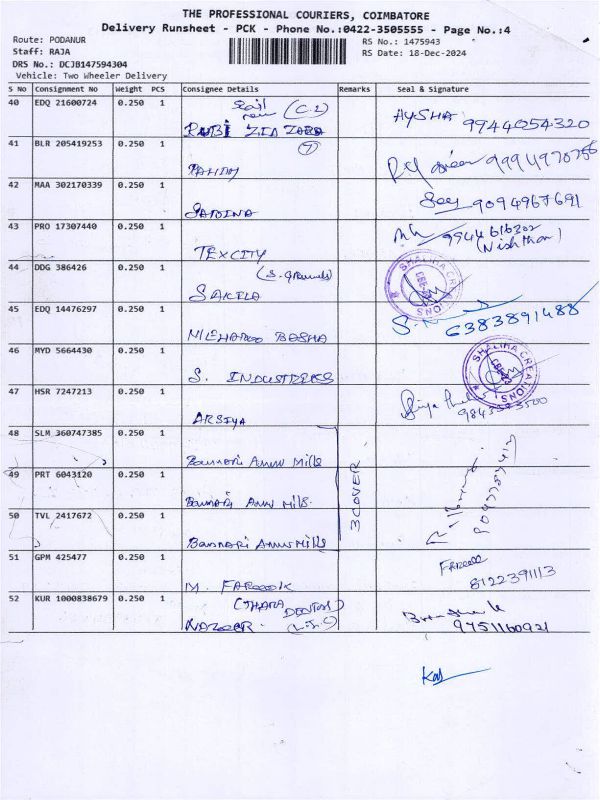 THE PROFESSIONAL COURIERS, COIMBATORE
Delivery Runsheet - PCK - Phone No.:0422-3505555 - Page No.:4
Route: PODANUR
Staff: RAJA
DRS No.: DCJB147594304
RS No.: 1475943
RS Date: 18-Dec-2024
Vehicle: Two Wheeler Delivery
S No Consignment No Weight PCS Consignee Details Remarks Seal & Signature
40 EDQ 21600724 0.250 1 ZIA ZARA AYSHA 9944054320
41 BLR 205419253 0.250 1 FAHIM
42 MAA 302170339 0.250 1 9094967691
43 PRO 17307440 0.250 1 TEXCITY
44 DDG 386426 0.250 1 SAKILA SHALIHA CREATIONS
45 EDQ 14476297 0.250 1 BASHA 6383891488
46 MYD 5664430 0.250 1 S. INDUSTRIES SHALIHA CREATIONS
47 HSR 7247213 0.250 1 ARSIYA
48 SLM 360747385 0.250 1 Bannari Amm Mills
49 PRT 6043120 0.250 1 Bannari Amm Mills. 3 COVER
50 TVL 2417672 0.250 1 Bannari Amm Mills
51 GPM 425477 0.250 1 M. FAROOK FAROOK 8122391113
52 KUR 1000838679 0.250 1 NAZEER. 9751160921